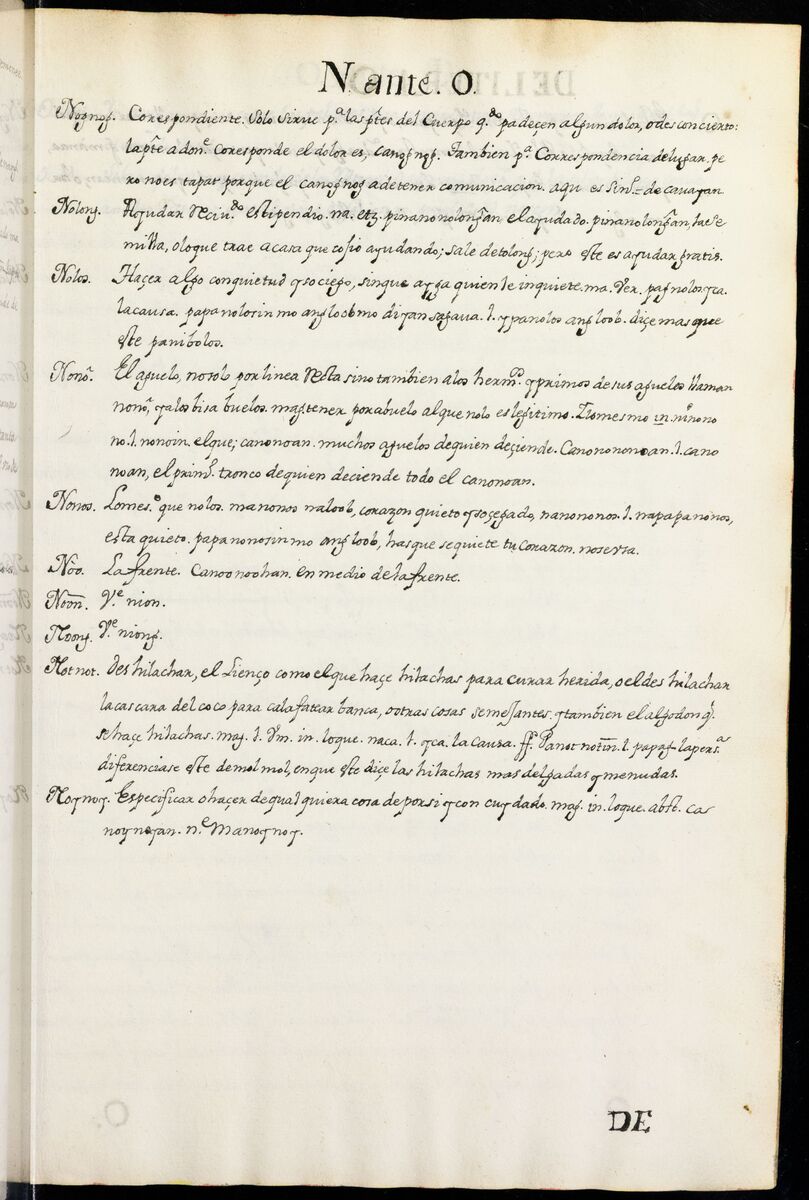 N. ante. O.
Nognog. Correspondiente. Solo sirue pª. las ptẽs del Cuerpo q.do padecen algun dolor, o desconcierto:
la ptẽ a don.e corresponde el dolor es, canognog. Tambien pª. Correspondencia de lugar, pe
ro no es tapat porque el canognog a de tener comunicacion. aqui es sin.= de cauagan.
Nolong. Ayudar Reciu.do estipendio. na. etz. pinanonolongan el ayudado. pinanolongan, la se
milla, o loque trae a casa que cosio ayudando; sale de tolong; pero este es ayudar gratis.
Nolos. Haçer algo con quietud y sociego, sinque ayga quien le inquiete. ma. Ver. pagnolos ya.
la causa. papanolosin mo ang loob mo di yan sagaua. l. ypanolos ang loob. diçe mas que
este panibolos.
Nonõ. El aguelo, no solo por linea Recta sino tambien a los herm.os y primos de sus aguelos llaman
nonõ, y a los bisabuelos. mag tener por abuelo al que no lo es legitimo. Lo mesmo in. ninono
no. l. nonoin. el que; canonoan. muchos aguelos de quien deçiende. Canonononoan. l. cano
noan, el prim.o tronco de quien deciende todo el canonoan.
Nonos. Lo mes.o que nolos. ma nonos na loob, corazon quieto y soçegado, nanononos. l. napapanonos,
esta quieto. papanonosin mo ang loob, has que se quiete tu Corazon. noserya.
Nòo. La frente. Canoonoohan. en medio de la frente.
Noõn. V.e nion.
Noong. V.e niong.
Notnot. deshilachar, el Lienço como el que haçe hilachas para curar herida, o el deshilachar
la cascara del coco para calafatear banca, o otras cosas semejantes. y tambien el algodon q.
se haçe hilachas. mag. l. Vm. in. loque. naca. l. yca. la causa. ff. Panot notin. l. papag la pers.a
diferenciase este de mol mol, en que este diçe las hilachas mas delgadas y menudas.
Noynoy. Especificar o haçer de qual quiera cosa de por si y con cuydado. mag. in. loque. abst. cas
noynoyan. n.e Manoynoy.
DE